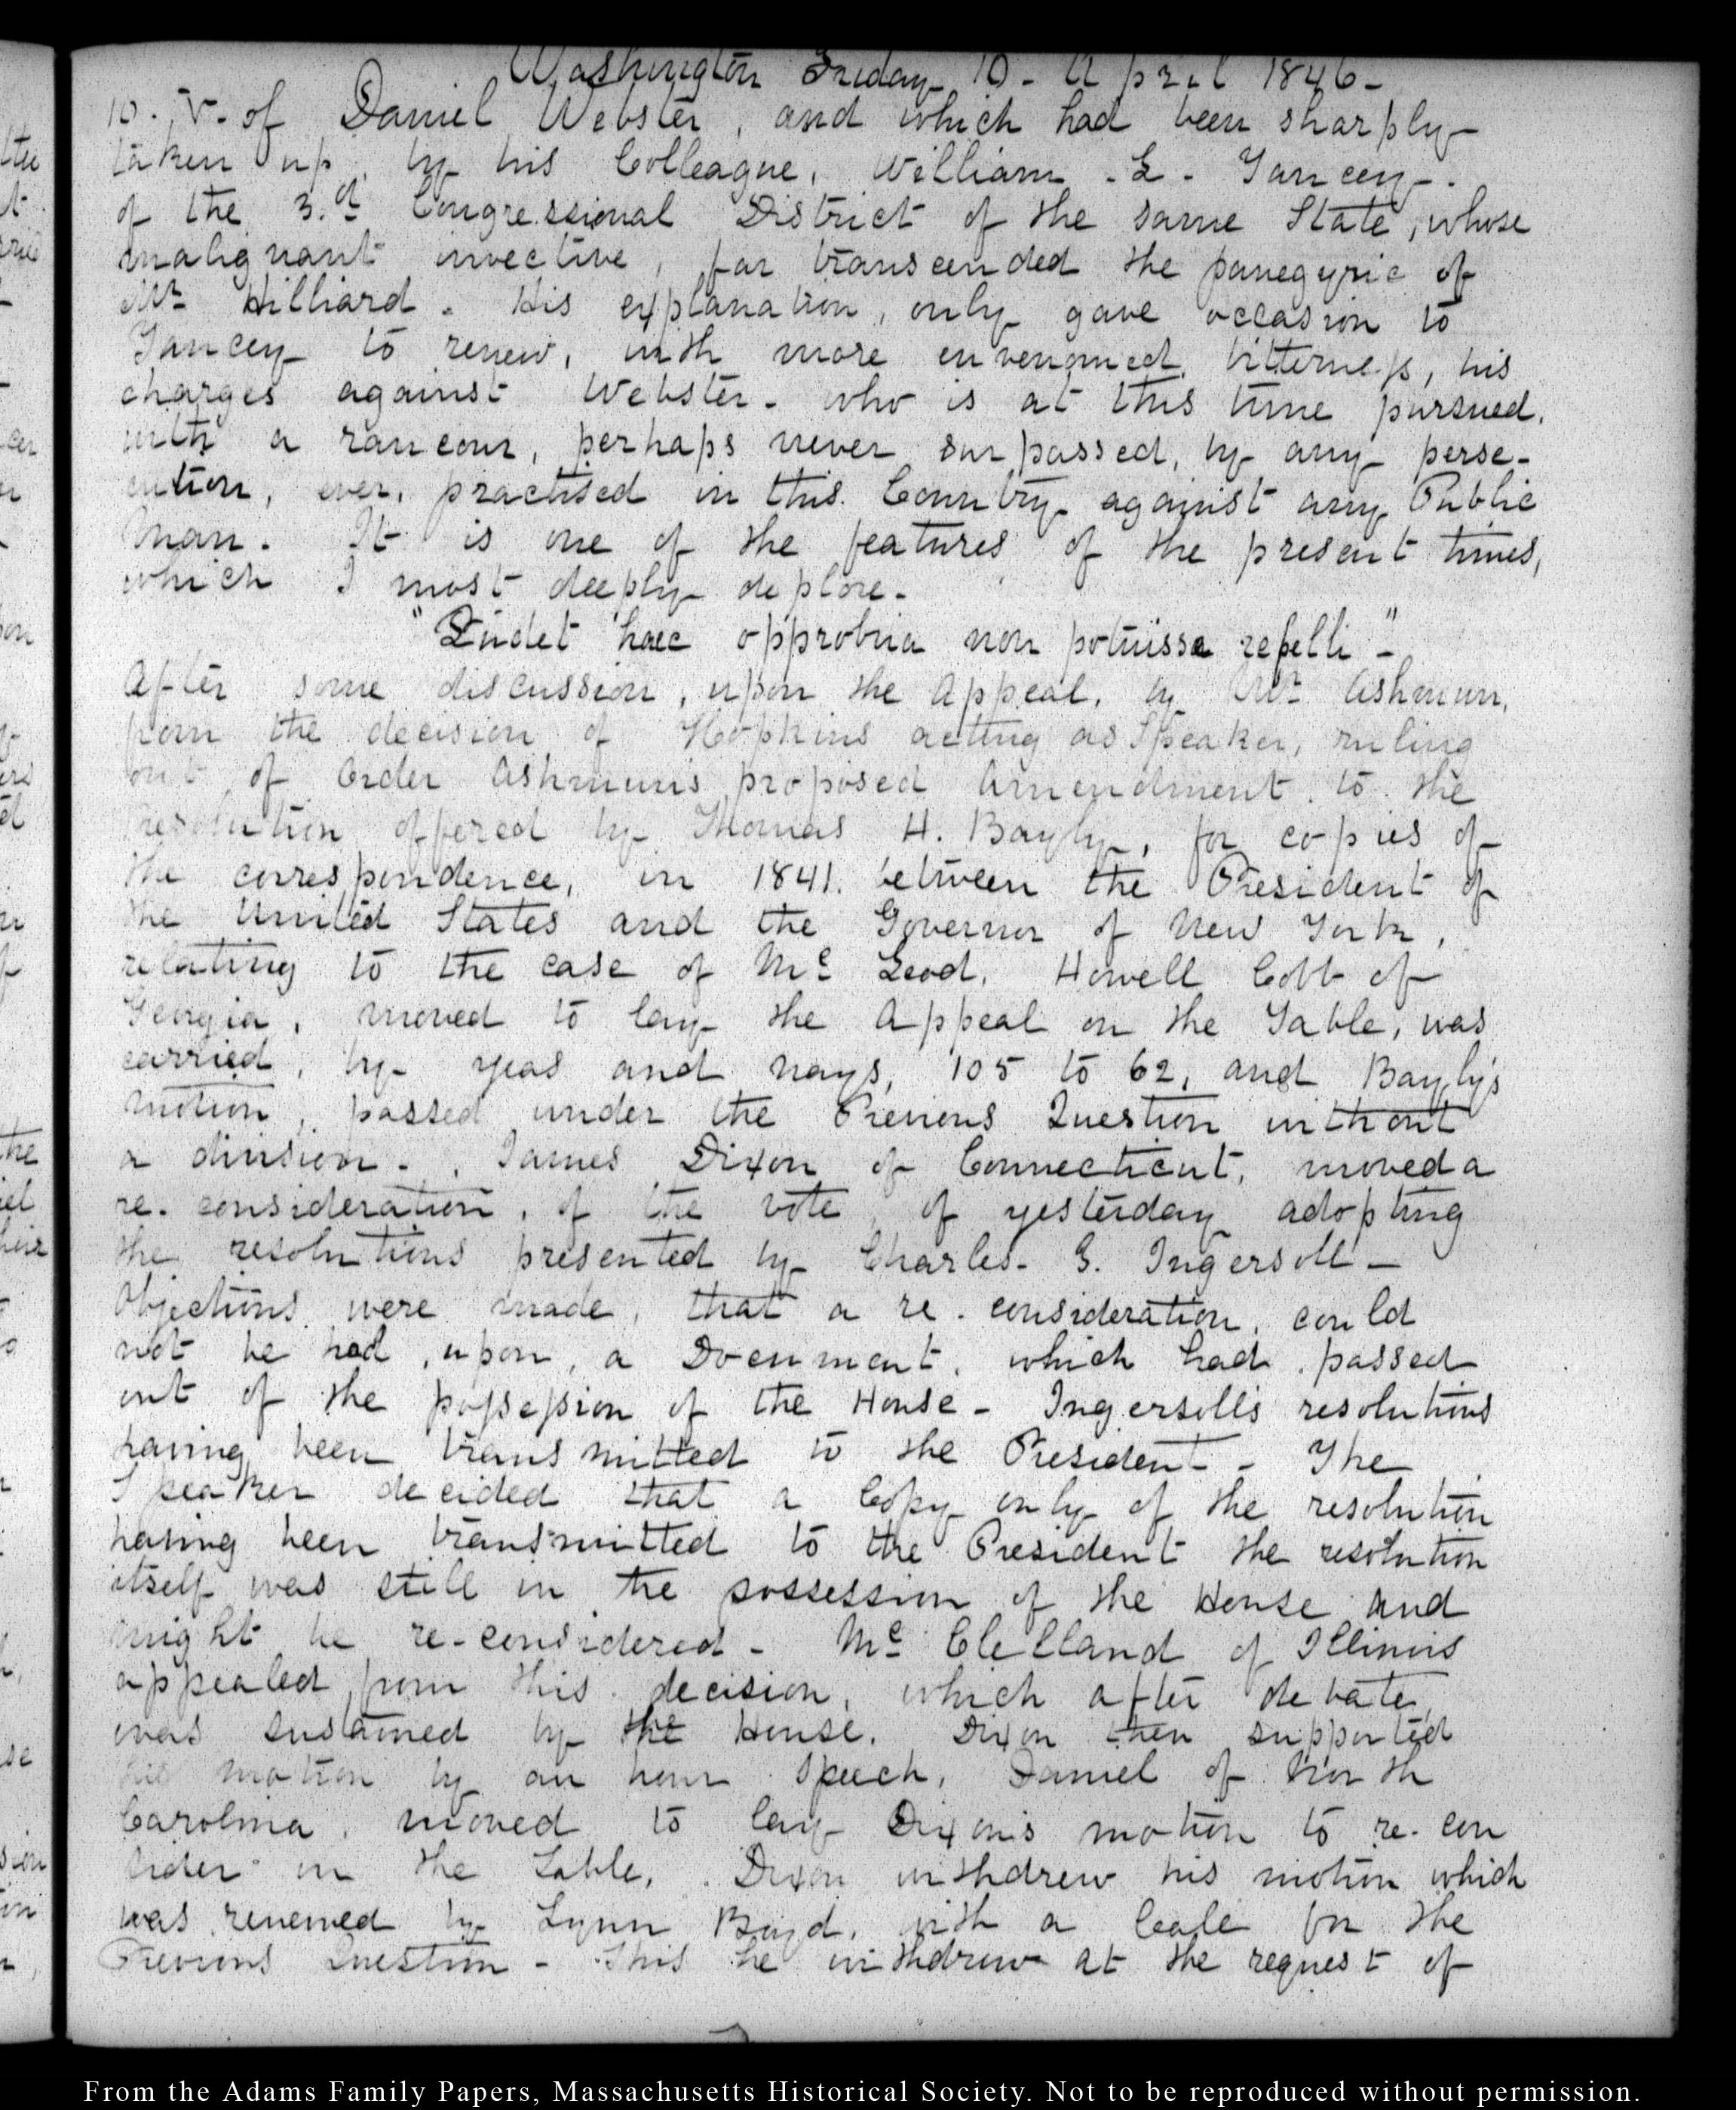 Washington Friday 10 - April 1846 -
10. V. of Daniel Webster, and which had been sharply
taken up, by his Colleague, William . L . Yancey -.
of the 3.d Congressional District of the same State, whose
malignant invective, far transcended the panegyric of
Mr Hilliard. His explanation, only gave occasion to
Yancey to renew, with more envenomed, bitterness, his
charges against Webster - who is at this time pursued,
with a rancour, perhaps never surpassed, by any perse-
cution, ever, practised in this Country against any Public
Man. It is one of the features of the present times,
which I most deeply deplore -
"Pudet haec opprobria non potuisse repelli" -
After some discussion, upon the Appeal, by Mr Ashmun,
from the decision of Hopkins acting as Speaker, ruling
out of Order Ashmun's proposed Amendment to the
resolution offered by Thomas H. Bayly, for copies of
the correspondence, in 1841. between the President of
the United States and the Governor of New York,
relating to the case of Mc Leod, Howell Cobb of
Georgia, moved to lay the Appeal on the Table, was
carried, by yeas and nays, 105 to 62, and Bayly's
motion, passed under the Previous Question without
a division - . James Dixon of Connecticut, moved a
re. consideration, of the vote of yesterday adopting
the resolutions presented by Charles - J. Ingersoll -
Objections were made, that a re. consideration, could
not be had, upon, a Document, which had passed
out of the possession of the House - Ingersoll's resolutions
having been transmitted to the President - - The
Speaker decided that a Copy only of the resolution
having been transmitted to the President the resolution
itself was still in the possession of the House and
might be re-considered - Mc Clelland of Illinois
appealed from this decision, which after debate,
was sustained by the House. Dixon then supported
his motion by an hour speech, Daniel of North
Carolina, moved to lay Dixon's motion to re-con
sider on the Table, . Dixon withdrew his motion which
was renewed by Lynn Boyd, with a Calle for the
Previous Question - This he withdrew at the request of
From the Adams Family Papers, Massachusetts Historical Society. Not to be reproduced without permission.